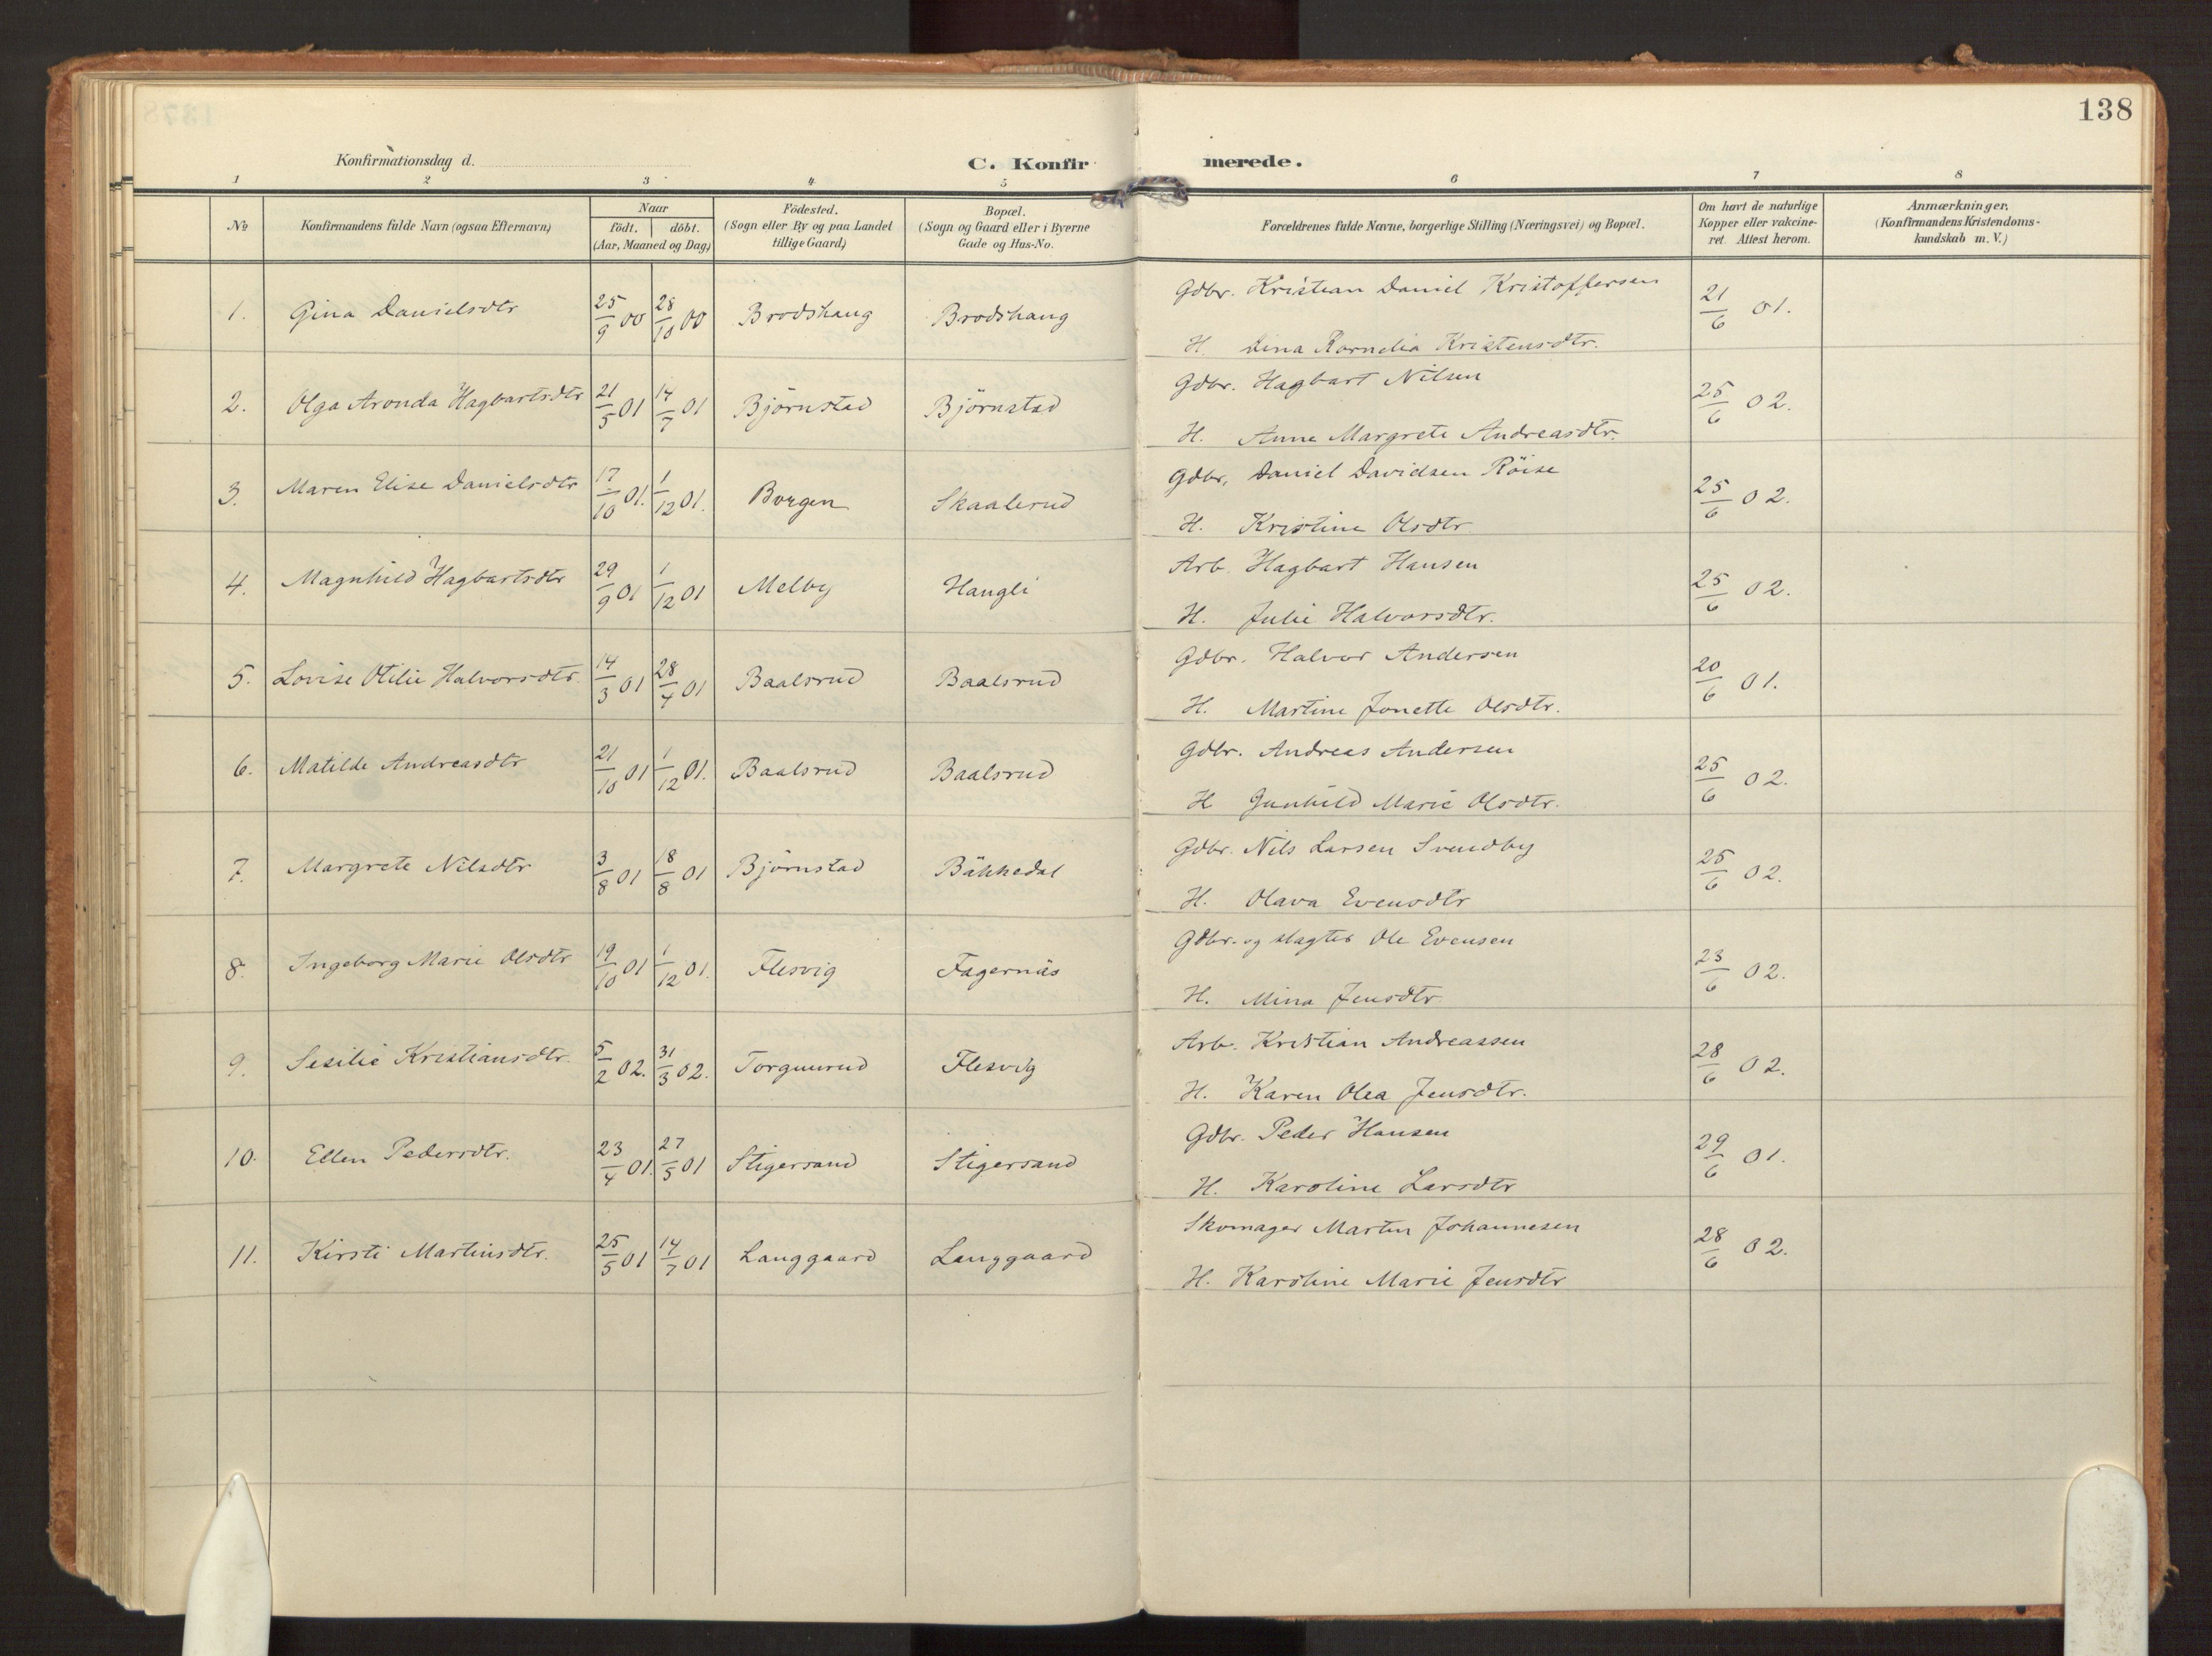 138
Konfirmationsdag d.
C. Konfirmerede.
1 2 3 4 5 6 7 8
No
Konfirmandens fulde Navn (ogsaa Efternavn)
Naar
födt. döbt.
(Aar, Maaned og Dag)
Födested.
(Sogn eller By og paa Landet
tillige Gaard)
Bopæl.
(Sogn og Gaard eller i Byerne
Gade og Hus-No.
Forældrenes fulde Navne, borgerlige Stilling (Næringsvei) og Bopæl.
Om havt de naturlige
Kopper eller vakcine-
ret. Attest herom.
Anmærkninger.
(Konfirmandens Kristendoms-
kundskab m. V.)
1. Gina Danielsdtr 25/9 00 28/10 00 Brodshaug Brodshaug Gdbr. Kristian Daniel Kristoffersen 21/6 01.
H. Lina Kornelia Kristensdtr.
2. Olga Aronda Hagbartsdtr 21/5 01 14/7 01 Björnstad Björnstad Gdbr. Hagbart Nilsen 25/6 02.
H. Anne Margrete Andreasdtr.
3. Maren Elise Danielsdtr 17/10 01. 1/12 01. Borgen Skaalerud Gdbr. Daniel Davidsen Röise 25/6 02.
H. Kristine Olsdtr
4. Magnhild Hagbartsdtr 29/9 01 1/12 01 Melby Haugli Arb. Hagbart Hansen 25/6 02.
H. Julie Halvorsdtr.
5. Lovise Otilie Halvorsdtr. 14/3 01 28/4 01 Baalsrud Baalsrud Gdbr. Halvor Andersen 20/6 01.
H. Martine Jonette Olsdtr.
6. Matilde Andreasdtr 21/10 01 1/12 01. Baalsrud Baalsrud Gdbr. Andreas Andersen 25/6 02.
H Gunhild Marie Olsdtr.
7. Margrete Nilsdtr 3/8 01 18/8 01 Björnstad Bäkkedal Gdbr. Nils Larsen Svendby 25/6 02.
H. Olava Evensdtr
8. Ingeborg Marie Olsdtr 19/10 01 1/12 01. Flesvig Fagernäs Gdbr. og slagter Ole Evensen 23/6 02.
H. Mina Jensdtr
9. Sesilie Kristiansdtr. 5/2 02. 31/3 02. Torgunrud Flesvig Arb. Kristian Andreassen 28/6 02.
H. Karen Olea Jensdtr.
10. Ellen Pedersdtr. 23/4 01. 27/5 01 Stigersand Stigersand Gdbr. Peder Hansen 29/6 01.
H. Karoline Larsdtr
11. Kirsti Martinsdtr. 25/5 01 14/7 01 Langgaard Langgaard Skomager Martin Johannesen 28/6 02.
H. Karoline Marie Jensdtr